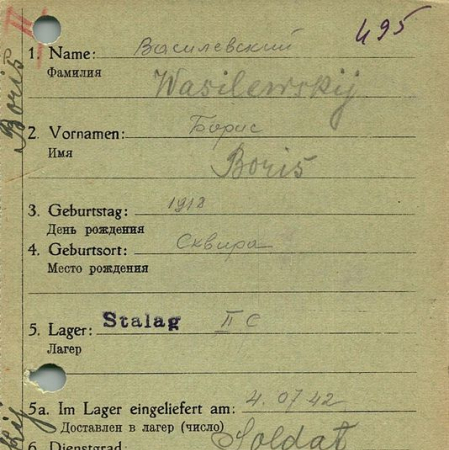 495
II
Boris
1. Name: Василевский
Фамилия
Wasilewskij
2. Vornamen: Борис
Имя
Boris
3. Geburtstag: 1918
День рождения
4. Geburtsort: Сквира
Место рождения
5. Lager: Stalag II C
Лагер
5a. Im Lager eingeliefert am: 4.07 42
Доставлен в лагер (число)
6. Dienstgrad: Soldat